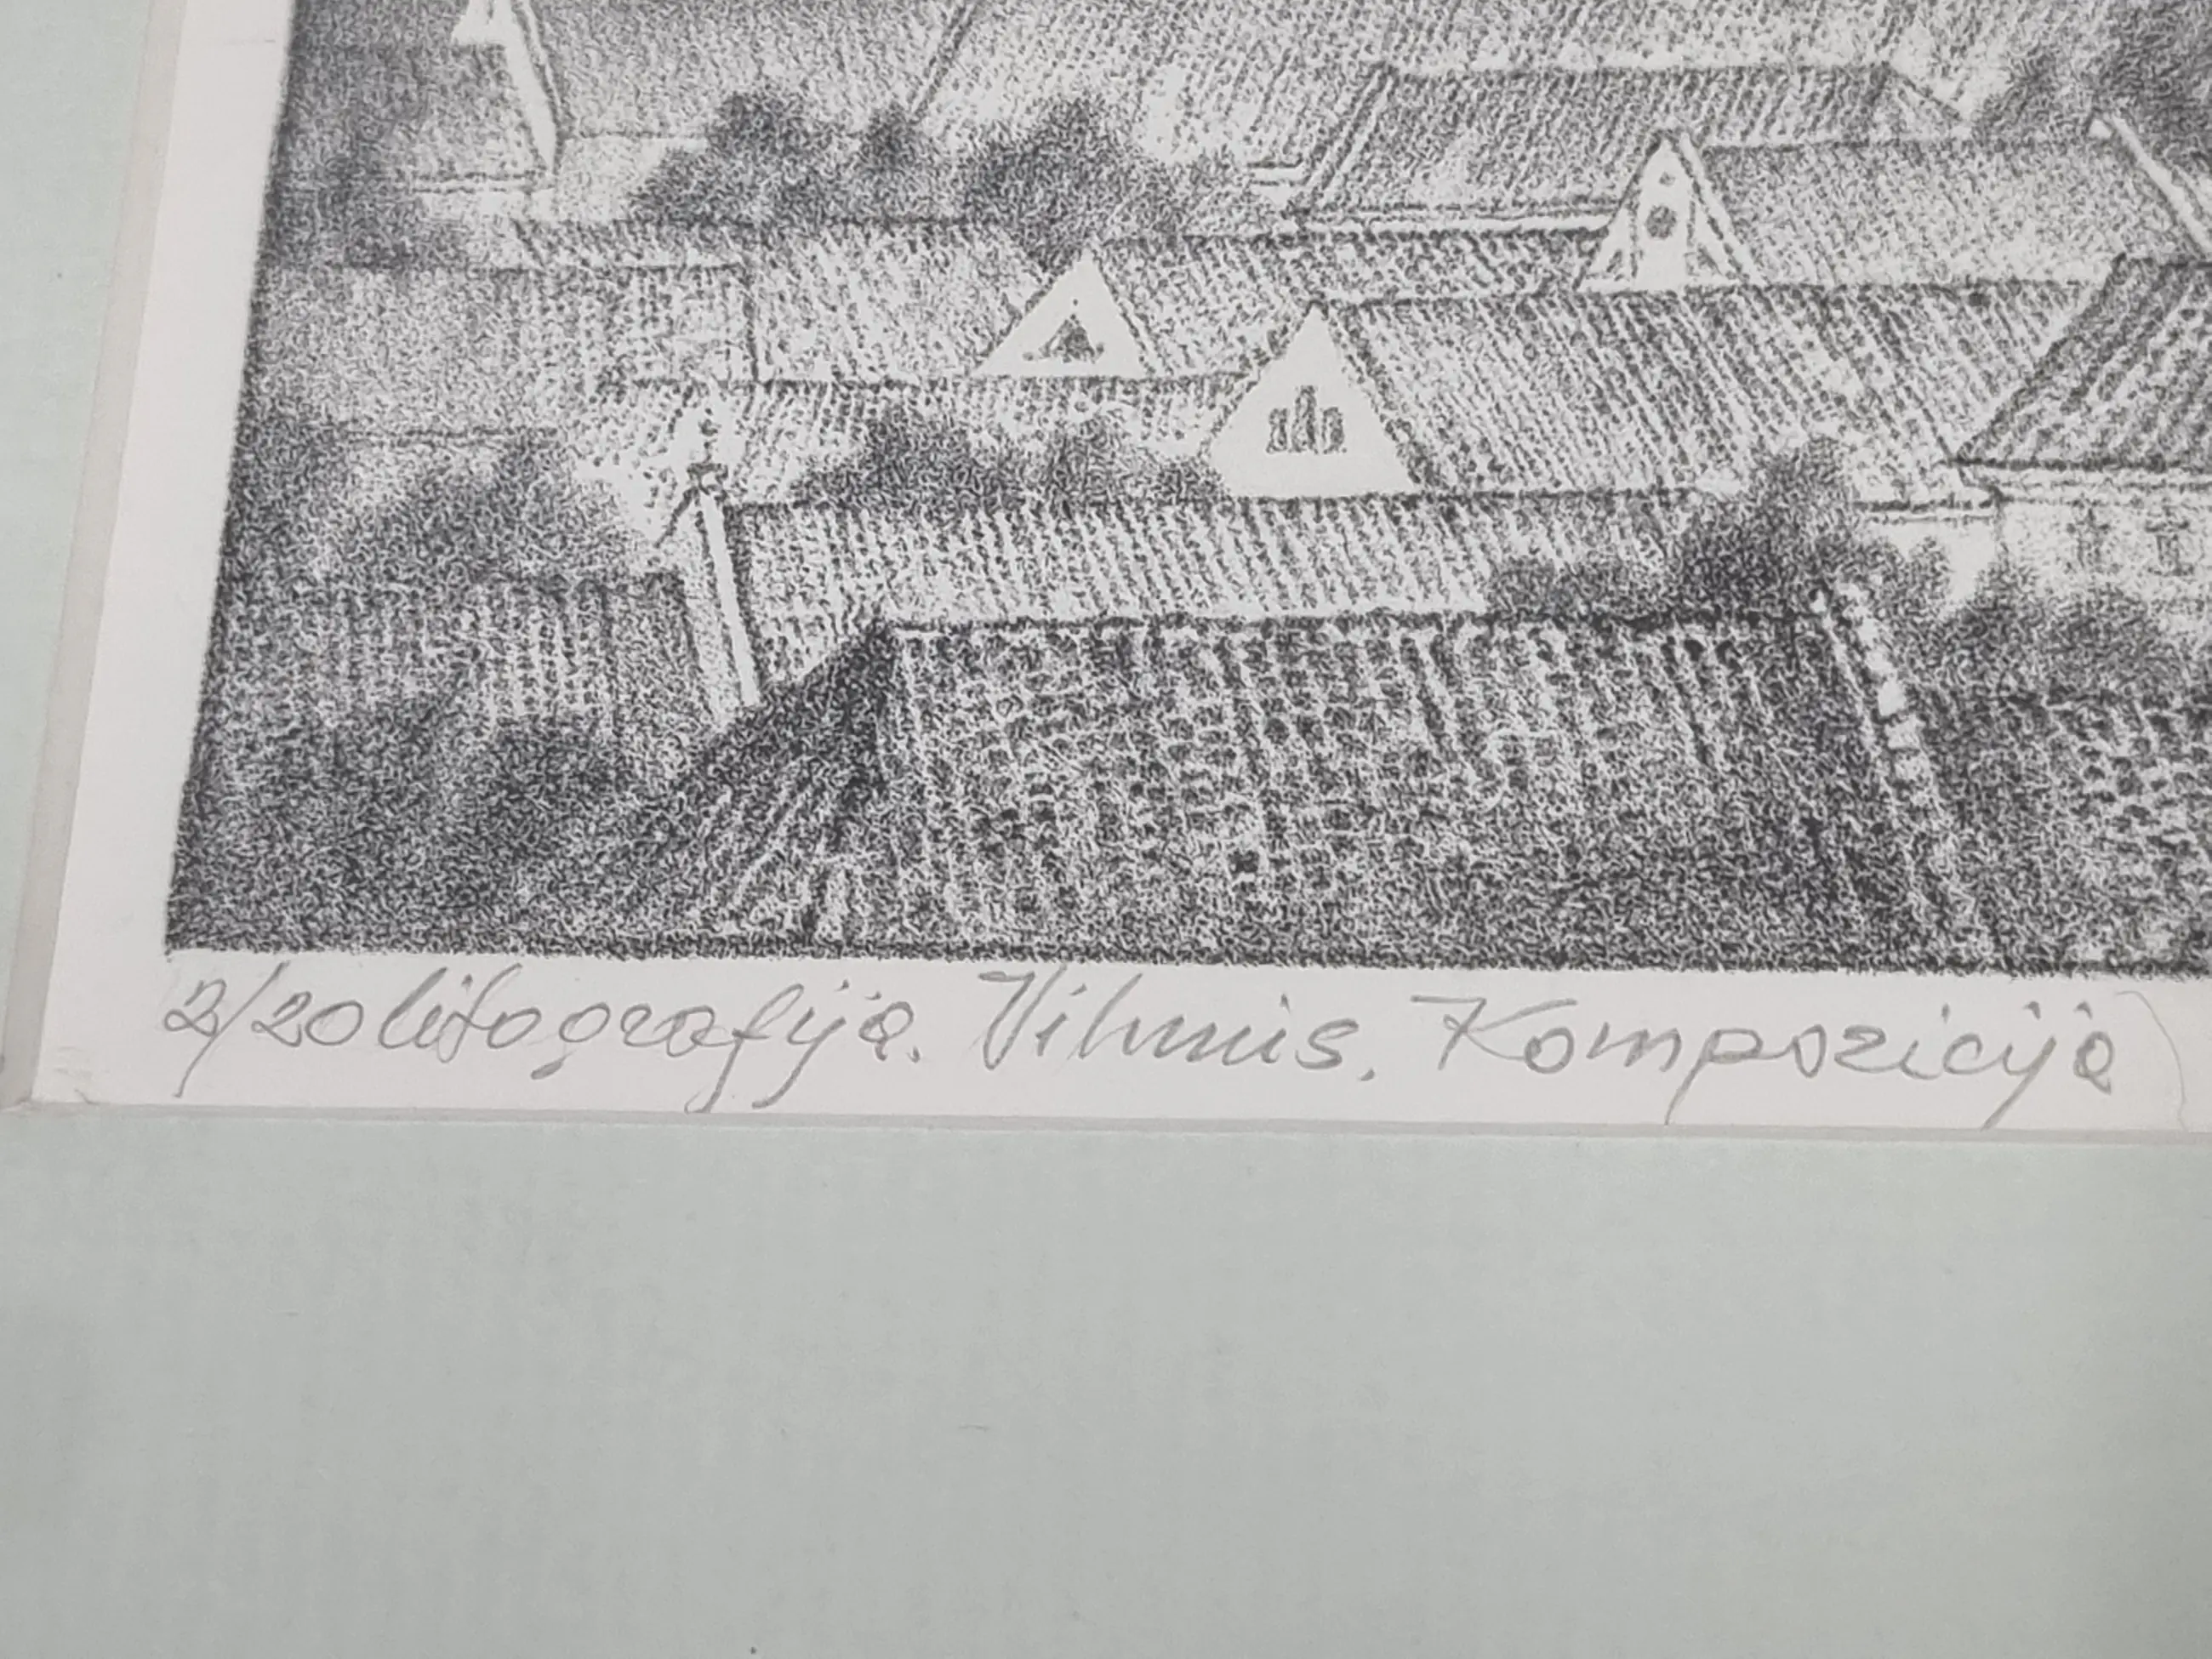 2/20 litografija. Vilnius. Kompozicija